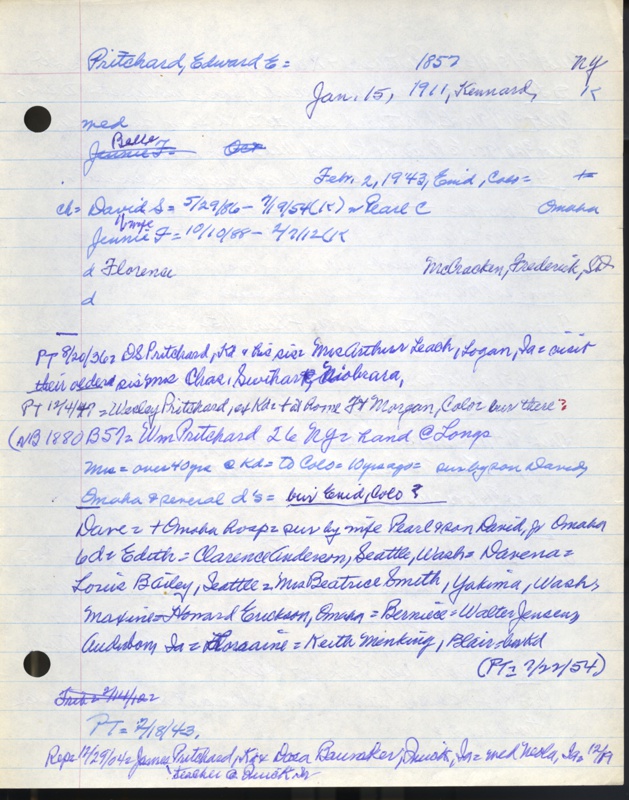 Pritchard, Edward E = 1857 NY
Jan. 15, 1911, Kennard, K
med
Belle
Jennie F =
Febr. 2, 1943, Enid, Colo =
ch = David S = 5/29/86 - 7/19/54 (K) = Pearl C Omaha
wife
Jennie F = 10/10/88 - 2/2/12 (K
d Florence McCracken, Frederick,
d
PT 8/20/36 = DS Pritchard, Kd & his sis = Mrs Arthur Leach, Logan, Ia = visit
their oldest sis Mrs Chas. Niobrara,
PT 12/4/47 = Wesley Pritchard, ex Kd = Ft Morgan, Colo = bur there?
(NB 1880 B57 = Wm Pritchard 26 NY = hand @ Longs
Mrs = over 40 yrs @ Kd = to Colo = 10 yrs ago = sur by son David,
Omaha & several d's = bur Enid, Colo?
Dave = + Omaha hosp = sur by wife Pearl & son David, Jr Omaha
6d = Edith = Clarence Anderson, Seattle, Wash = Davena =
Louis Bailey, Seattle = Mrs Beatrice Smith, Yakima, Wash =
Maxine = Howard Erickson, Omaha = Berniece = Walter Jensen,
Audubon, Ia = Lorraine = Keith Menking, Blair = bur Kd
(PT = 7/22/54)
PT = 2/18/43.
Rep = 12/29/04 = James Pritchard, K & Dora Quick, Ia = med Neola, Ia =
teacher @ Quick, Ia